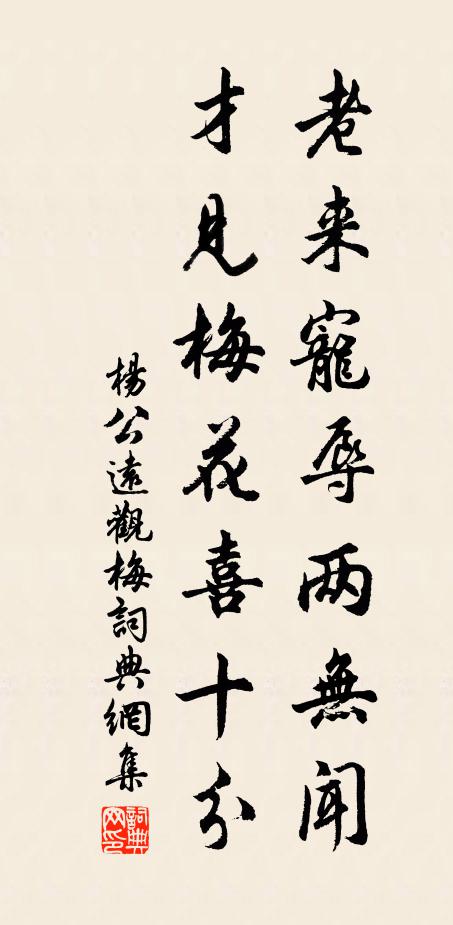 老来寵辱两無闻
才見梅花喜十分
楊公遠觀梅詞典網集
詞典网印